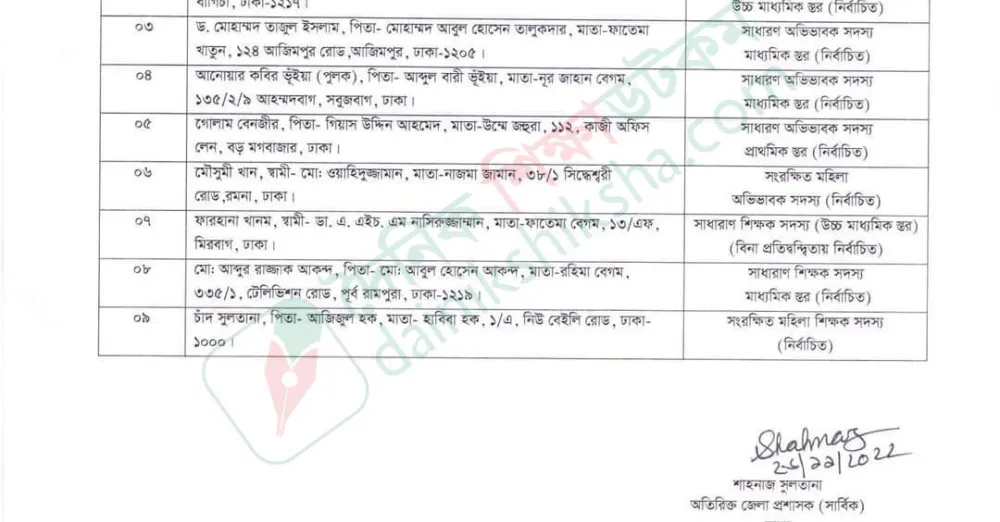 বাগিচা, ঢাকা-১২১৭।
উচ্চ মাধ্যমিক স্তর (নির্বাচিত)
০৩
ড. মোহাম্মদ তাজুল ইসলাম, পিতা- মোহাম্মদ আবুল হোসেন তালুকদার, মাতা-ফাতেমা
খাতুন, ১২৪ আজিমপুর রোড,আজিমপুর, ঢাকা-১২০৫।
সাধারণ অভিভাবক সদস্য
মাধ্যমিক স্তর (নির্বাচিত)
০৪
আনোয়ার কবির ভূঁইয়া (পুলক), পিতা- আব্দুল বারী ভূঁইয়া, মাতা-নূর জাহান বেগম,
১৩৫/২/৯ আহম্মদবাগ, সবুজবাগ, ঢাকা।
সাধারণ অভিভাবক সদস্য
মাধ্যমিক স্তর (নির্বাচিত)
০৫
গোলাম বেনজীর, পিতা- গিয়াস উদ্দিন আহমেদ, মাতা-উম্মে জহুরা, ১১২, কাজী অফিস
লেন, বড় মগবাজার, ঢাকা।
সাধারণ অভিভাবক সদস্য
প্রাথমিক স্তর (নির্বাচিত)
০৬
মৌসুমী খান, স্বামী- মো: ওয়াহিদুজ্জামান, মাতা-নাজমা জামান, ৩৮/১ সিদ্ধেশ্বরী
রোড,রমনা, ঢাকা।
সংরক্ষিত মহিলা
অভিভাবক সদস্য (নির্বাচিত)
০৭
ফারহানা খানম, স্বামী- ডা. এ. এইচ. এম নাসিরুজ্জাম্মান, মাতা-ফাতেমা বেগম, ১৩/এফ,
মিরবাগ, ঢাকা।
সাধারাণ শিক্ষক সদস্য (উচ্চ মাধ্যমিক স্তর)
(বিনা প্রতিদ্বন্দ্বিতায় নির্বাচিত)
০৮
মো: আব্দুর রাজ্জাক আকন্দ, পিতা- মো: আবুল হোসেন আকন্দ, মাতা-রহিমা বেগম,
৩৩৫/১, টেলিভিশন রোড, পূর্ব রামপুরা, ঢাকা-১২১৯।
সাধারণ শিক্ষক সদস্য
মাধ্যমিক স্তর (নির্বাচিত)
০৯
চাঁদ সুলতানা, পিতা- আজিজুল হক, মাতা- হাবিবা হক, ১/এ, নিউ বেইলি রোড, ঢাকা-
১০০০।
সংরক্ষিত মহিলা শিক্ষক সদস্য
(নির্বাচিত)
দৈনিক শিক্ষাডটকম
dainikshiksha.com
Shahnaz
২৬/১১/2022
শাহনাজ সুলতানা
অতিরিক্ত জেলা প্রশাসক (সার্বিক)